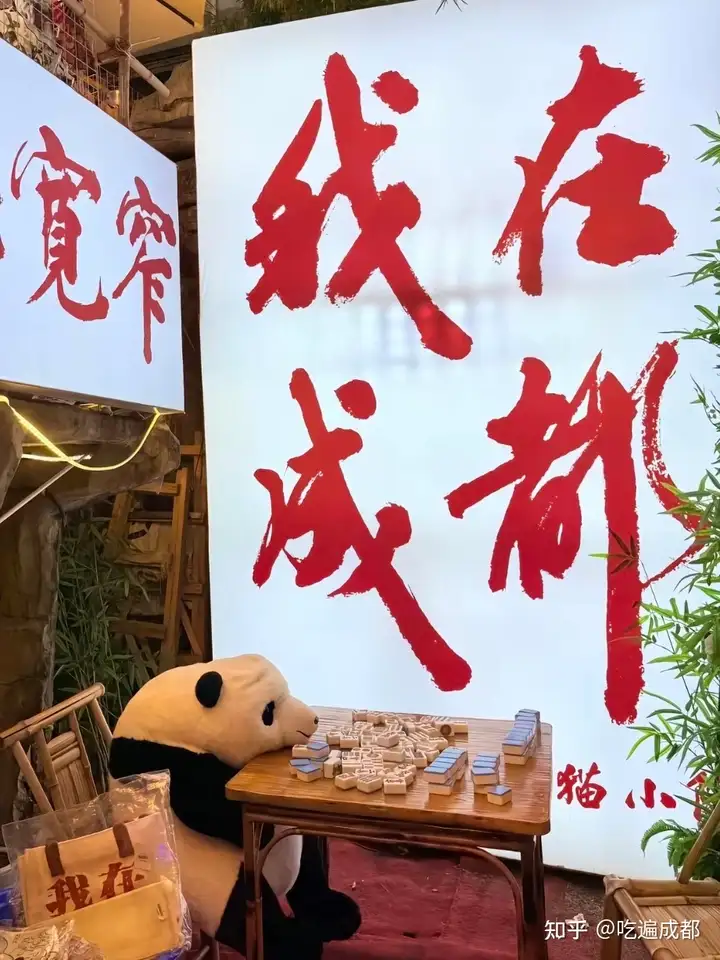 寬窄
我在
成都
猫小
我在
知乎 @吃遍成都